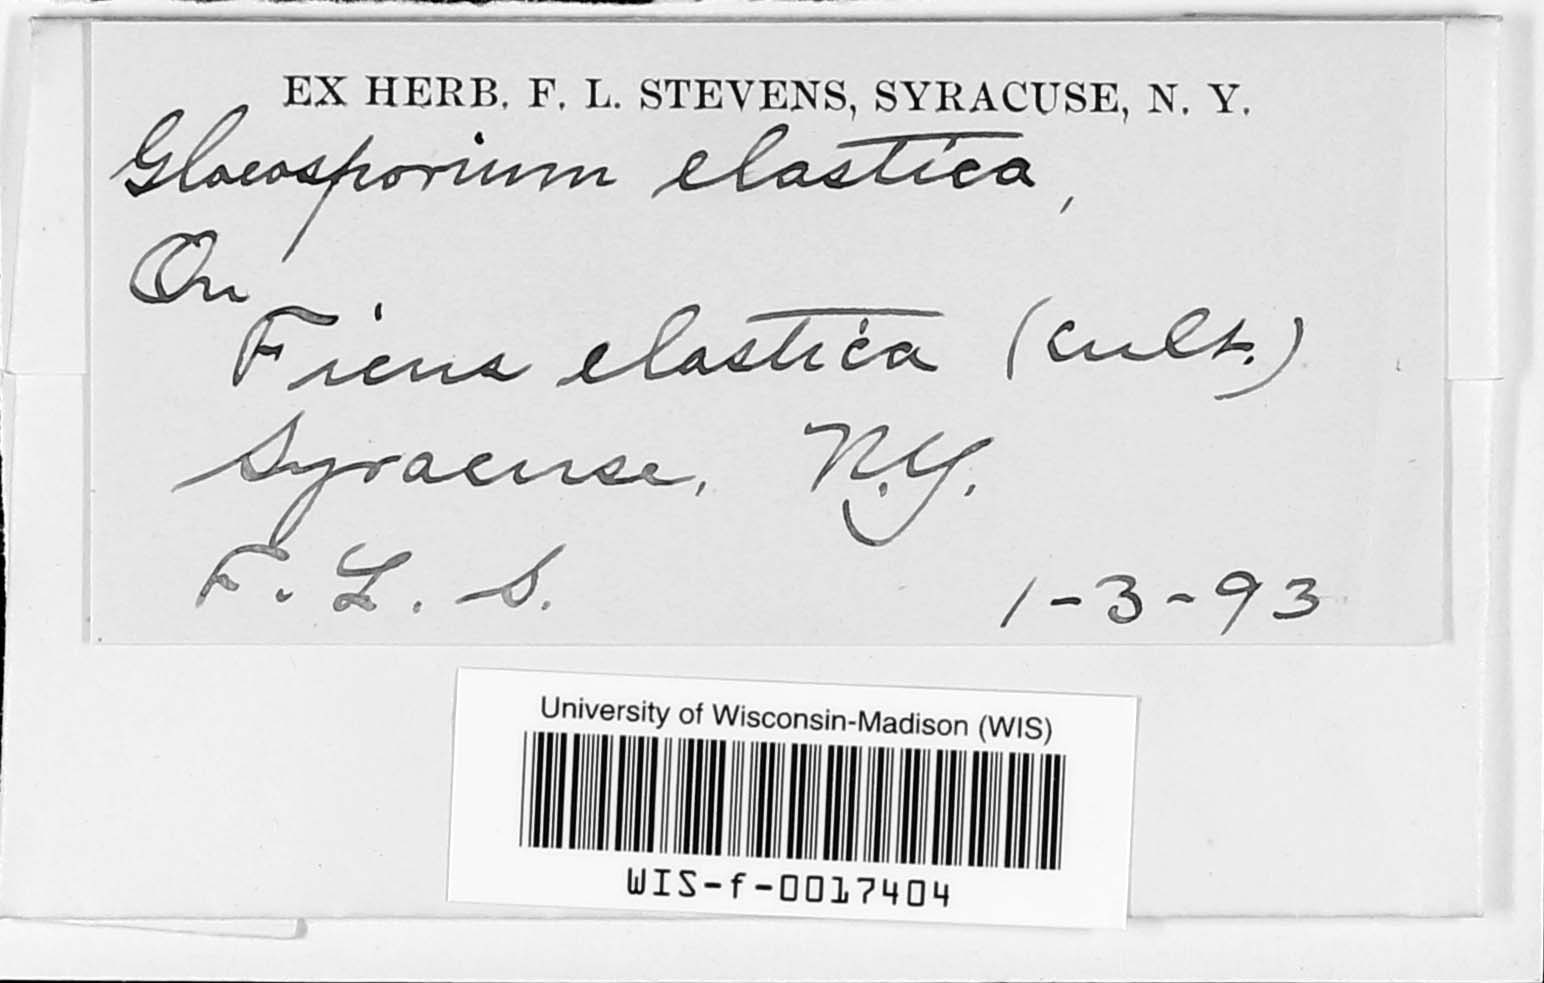 EX HERB. F. L. STEVENS, SYRACUSE, N. Y.
Gloeosporium elastica,
On
Ficus elastica (cult.)
Syracuse, N.Y.
F. L. S. 1-3-93
University of Wisconsin-Madison (WIS)
WIS-f-0017404